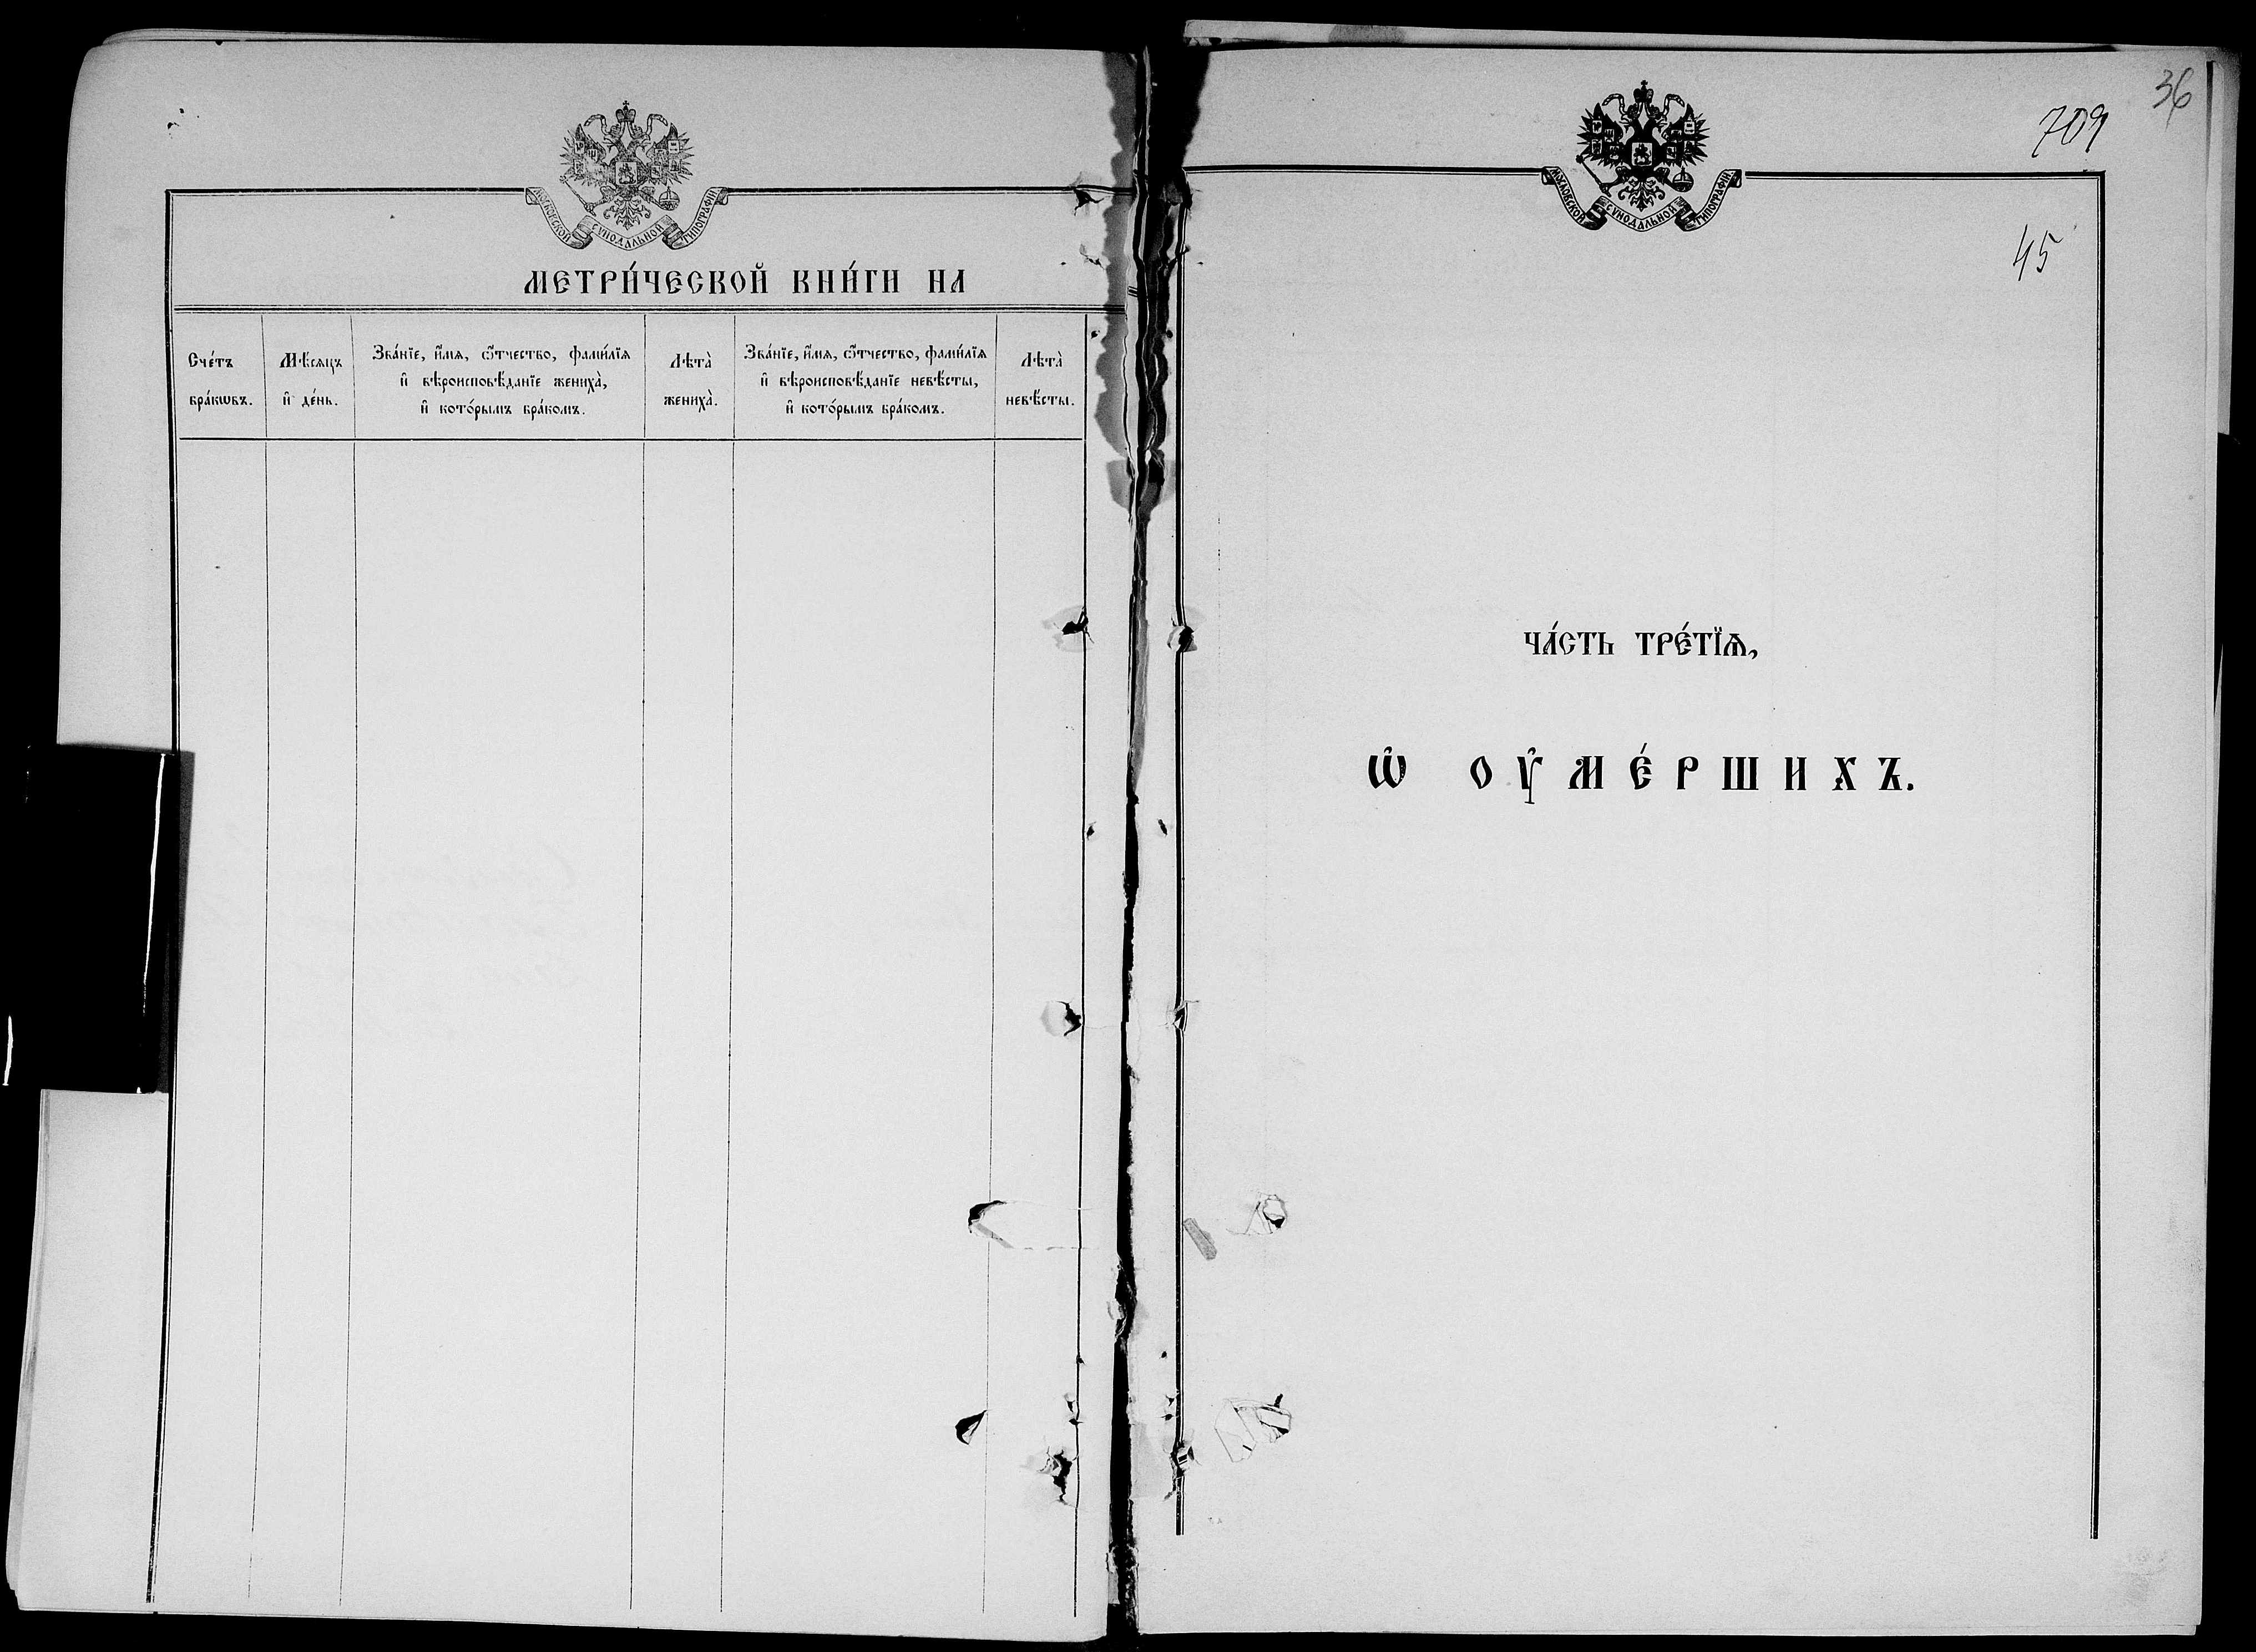 МОСКОВСКОЙ СѴНОДАЛЬНОЙ ТИПОГРАФІИ
МЕТРИ́ЧЕСКОЙ КНИ́ГИ НА
Сче́тъ
бра́кωвъ.
Мѣ́сяцъ
и҆ де́нь.
Зва́нїе, и҆́мѧ, ѻ҆́тчество, фами́лїѧ
и҆ вѣроисповѣ́данїе жениха̀,
и҆ кото́рымъ бра́комъ.
Лѣта̀
жениха̀.
Зва́нїе, и҆́мѧ, ѻ҆́тчество, фами́лїѧ
и҆ вѣроисповѣ́данїе невѣ́сты,
и҆ кото́рымъ бра́комъ.
Лѣта̀
невѣ́сты.
36
709
МОСКОВСКОЙ СѴНОДАЛЬНОЙ ТИПОГРАФІИ
45
ЧА́СТЬ ТРЕ́ТЇѦ,
Ѡ҆ ОУ҆МЕ́РШИХЪ.